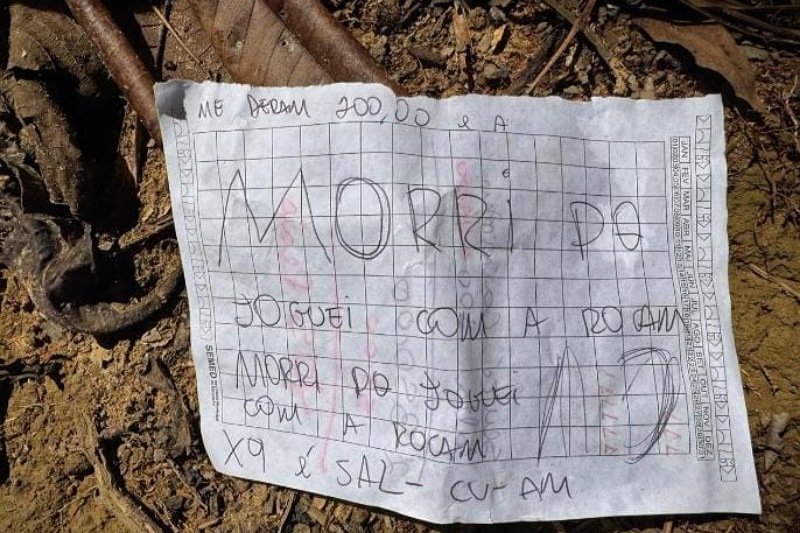 ME DERAM 200,00 e A
MORRI DO
JOGUEI COM A ROCAM
MORRI DO JOGUEI
COM A ROCAM
X9 é SAL - CU - AM
SEMED
JAN FEV MAR ABR MAI JUN JUL AGO SET OUT NOV DEZ